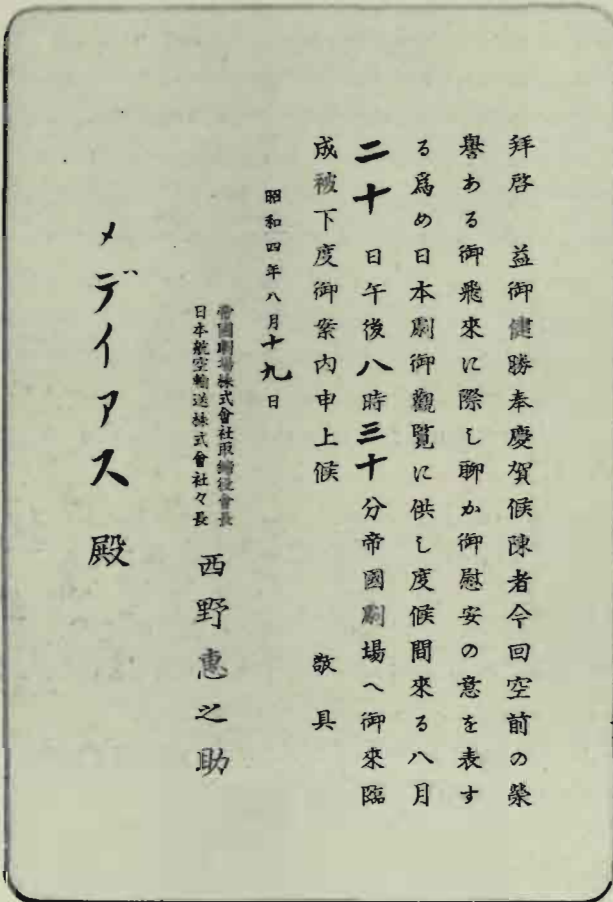 拜啓　益御健勝奉慶賀候陳者今回空前の榮
譽ある御飛來に際し聊か御慰安の意を表す
る爲め日本劇御觀覽に供し度候間來る八月
二十日午後八時三十分帝國劇場へ御來臨
成被下度御案内申上候　敬具
昭和四年八月十九日
帝國劇場株式會社取締役會長
日本航空輸送株式會社々長
西野惠之助
メデイアス殿